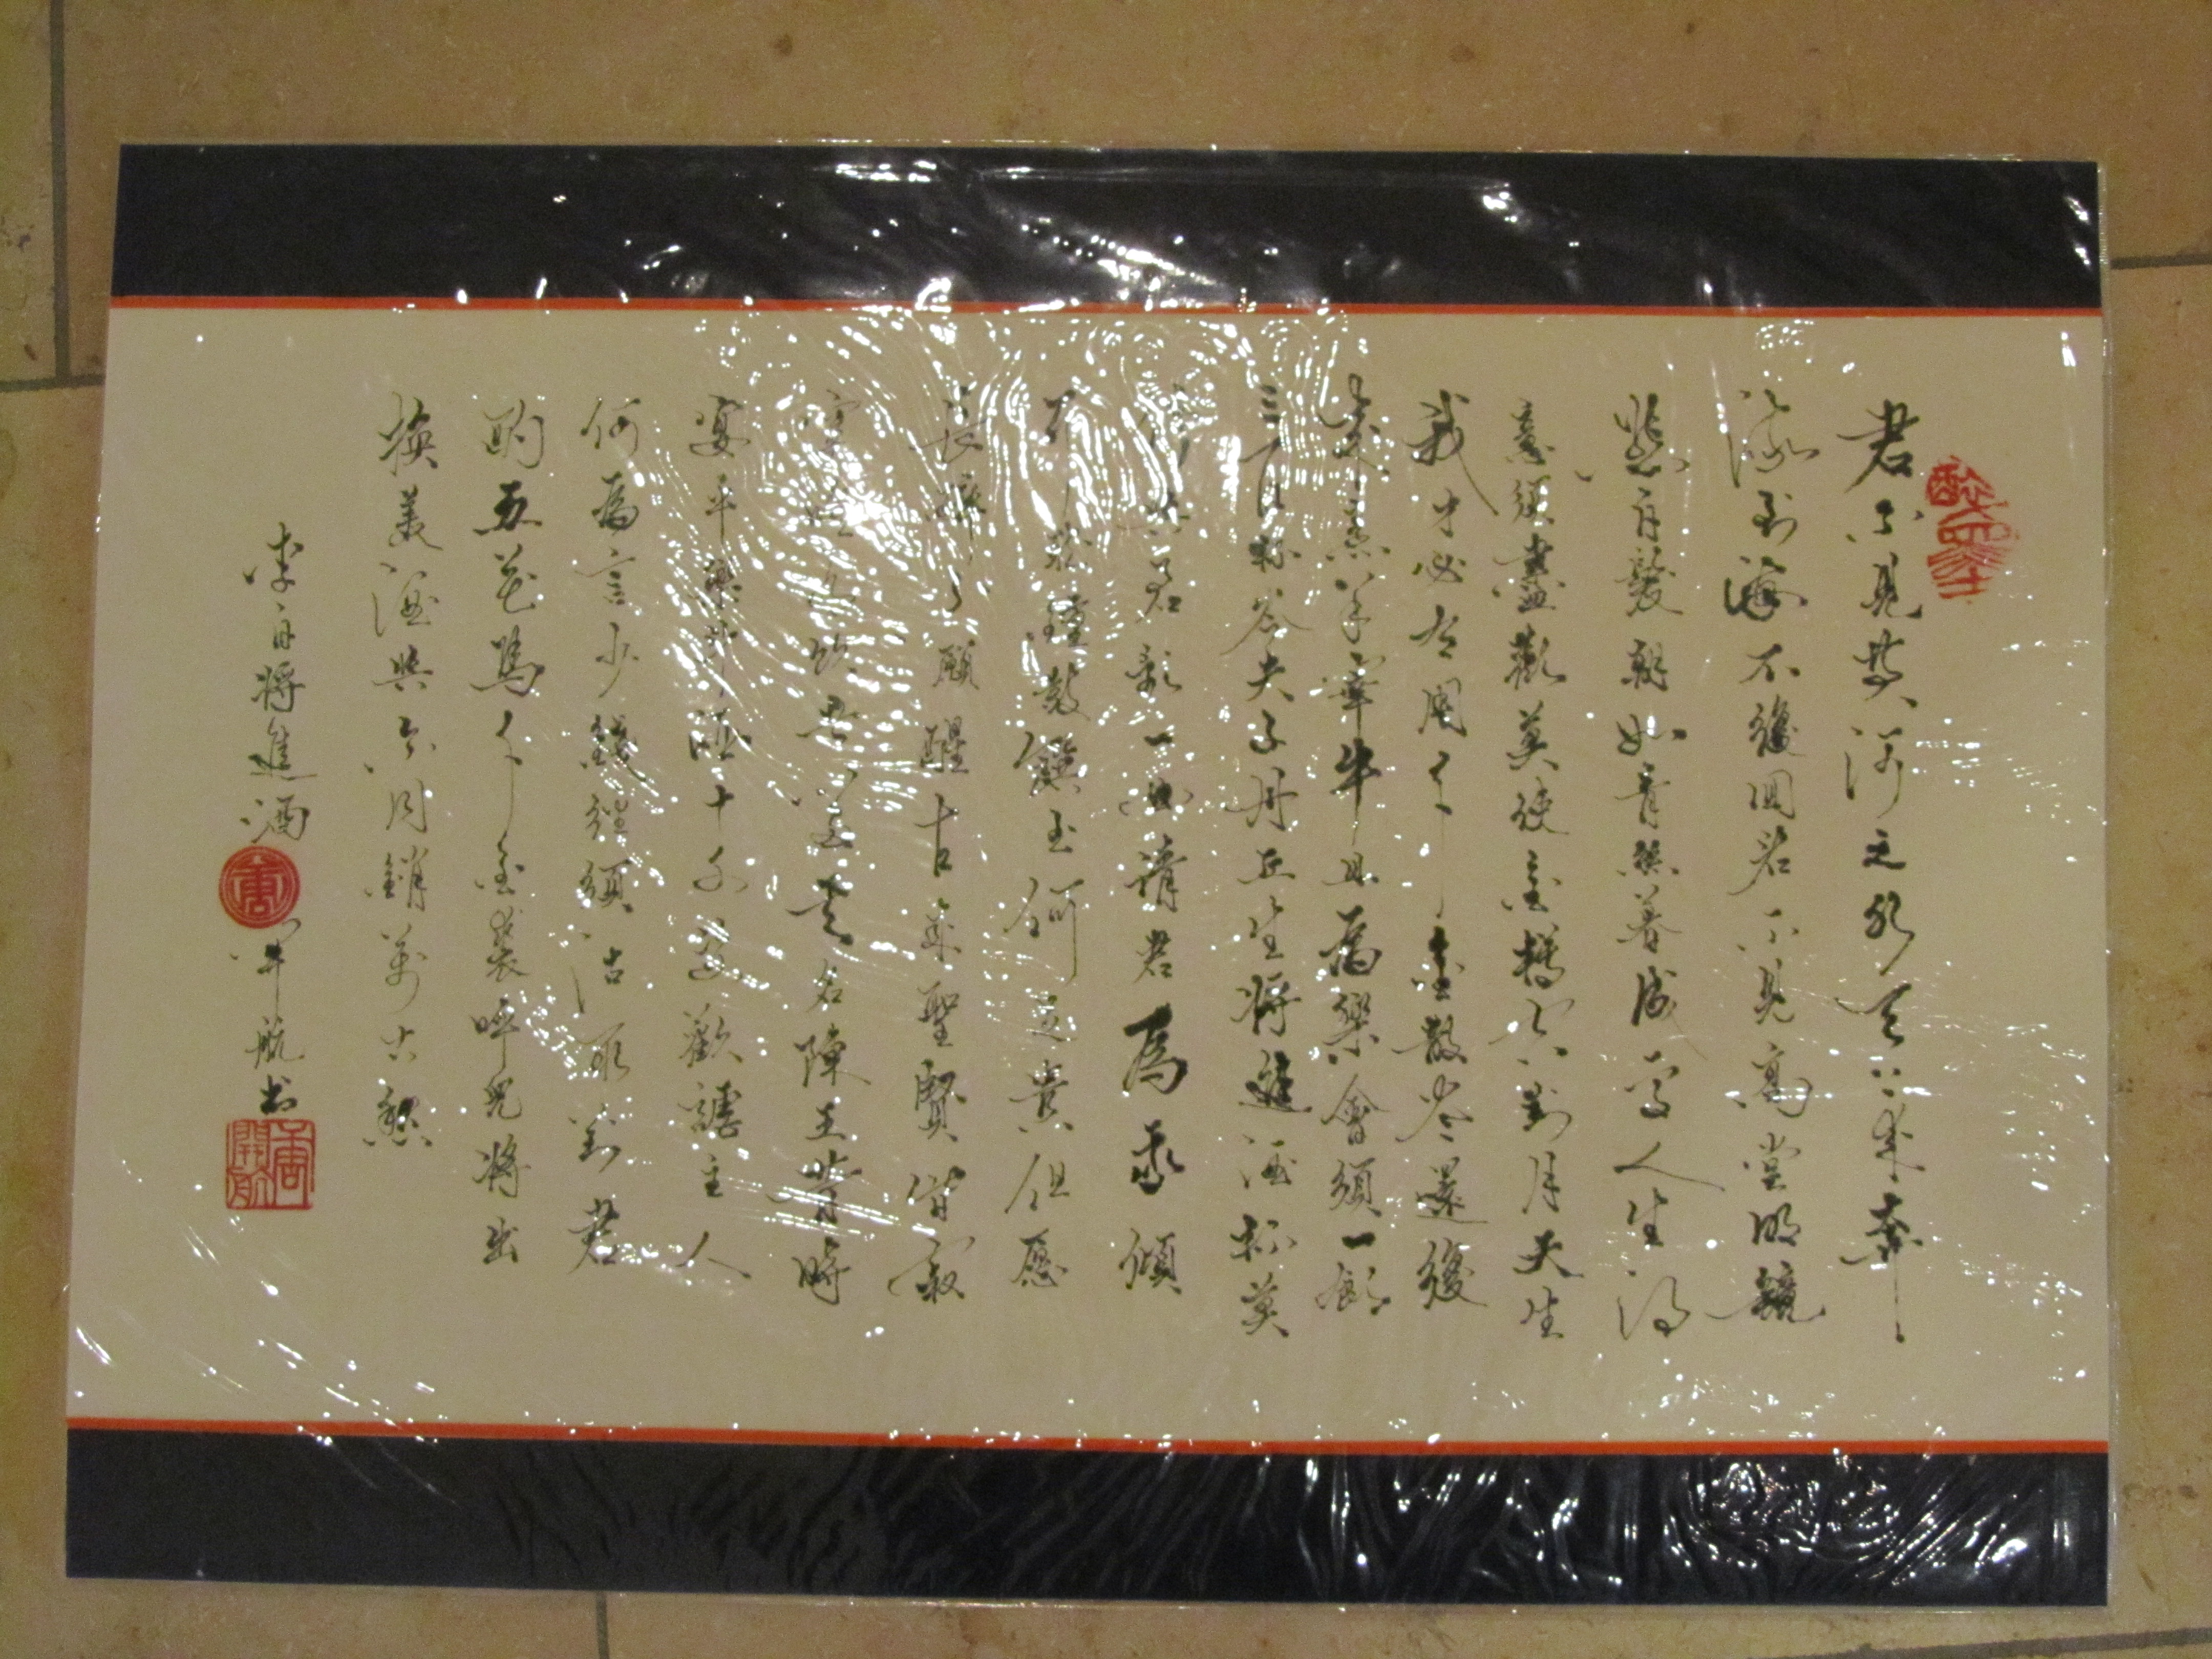 君不見黃河之水天上來奔
流到海不復回君不見高堂明鏡
悲白髮朝如青絲暮成雪人生得
意須盡歡莫使金樽空對月天生
我才必有用千金散盡還復
來烹羊宰牛且為樂會須一飲
三百杯岑夫子丹丘生將進酒杯莫
停與君歌一曲請君為我傾
耳鐘鼓饌玉何足貴但愿
長醉不願醒古來聖賢皆寂
寞唯有飲者留其名陳王昔時
宴平樂斗酒十千恣歡謔主人
何為言少錢徑須沽取對君
酌五花馬千金裘呼兒將出
換美酒與爾同銷萬古愁
李白將進酒
唐
開航书
唐開航